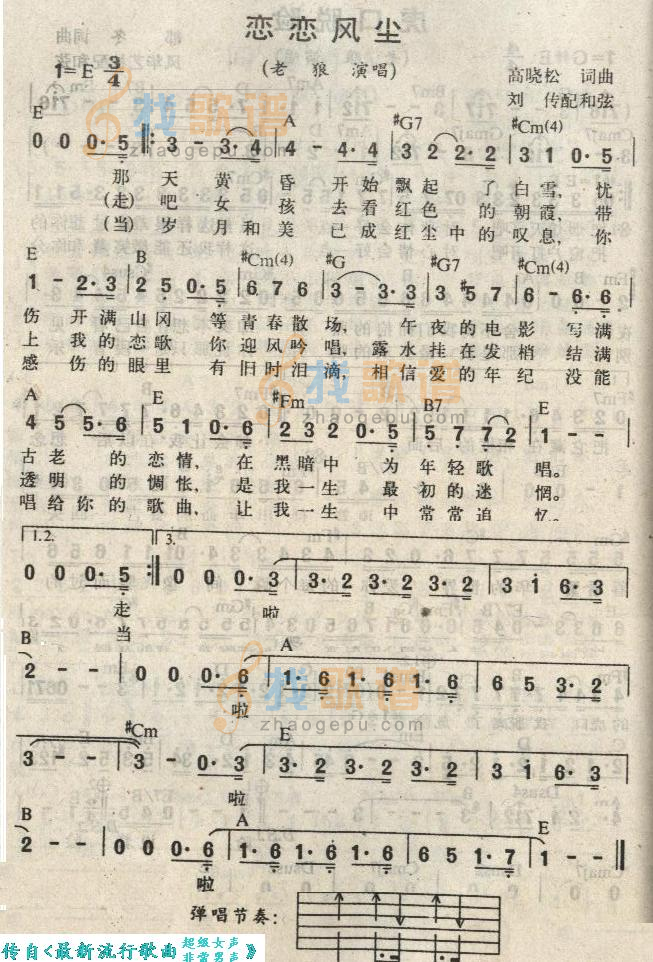 恋恋风尘
(老狼演唱)
1=E 3/4
高晓松 词曲
刘 传配和弦
E A #G7 #Cm(4)
0 0 0·5 ‖: 3 - 3·4 | 4 - 4·4 | 3 2 2·2 | 3 1 0·5
那 天 黄 昏 开 始 飘 起 了 白 雪, 忧
(走) 吧 女 孩 去 看 红 色 的 朝 霞, 带
(当) 岁 月 和 美 已 成 红 尘 中 的 叹 息, 你
B #Cm(4) #G #G7 #Cm(4)
1 - 2·3 | 2 5 0·5 | 6 7 6 | 3 - 3·3 | 3 #5 7 | 6 - 6·6
伤 开 满 山 冈 等 青 春 散 场, 午 夜 的 电 影 写 满
上 我 的 恋 歌 你 迎 风 吟 唱, 露 水 挂 在 发 梢 结 满
感 伤 的 眼 里 有 旧 时 泪 滴, 相 信 爱 的 年 纪 没 能
A E #Fm B7 E
4 5 5·6 | 5 1 0·6 | 2 3 2 0·5 | 5 7 7 2 | 1 - -
古 老 的 恋 情, 在 黑 暗 中 为 年 轻 歌 唱。
透 明 的 惆 怅, 是 我 一 生 最 初 的 迷 惘。
唱 给 你 的 歌 曲, 让 我 一 生 中 常 常 追 忆。
1.2. 3. E
0 0 0·5 :‖ 0 0 0·3 | 3·2 3·2 3·2 | 3 1 6·3
走 啦
当
B A
2 - - | 0 0 0·6 | 1·6 1·6 1·6 | 6 5 3·2
啦
#Cm E
3 - - | 3 - 0·3 | 3·2 3·2 3·2 | 3 1 6·3
啦
B A E
2 - - | 0 0 0·6 | 1·6 1·6 1·6 | 6 5 1·7 | 1 - - ‖
啦
弹唱节奏:
传自<最新流行歌曲 超级女声 非常男声》
找歌谱
zhaogepu.com
找歌谱
zhaogepu.com
找歌谱
zhaogepu.com